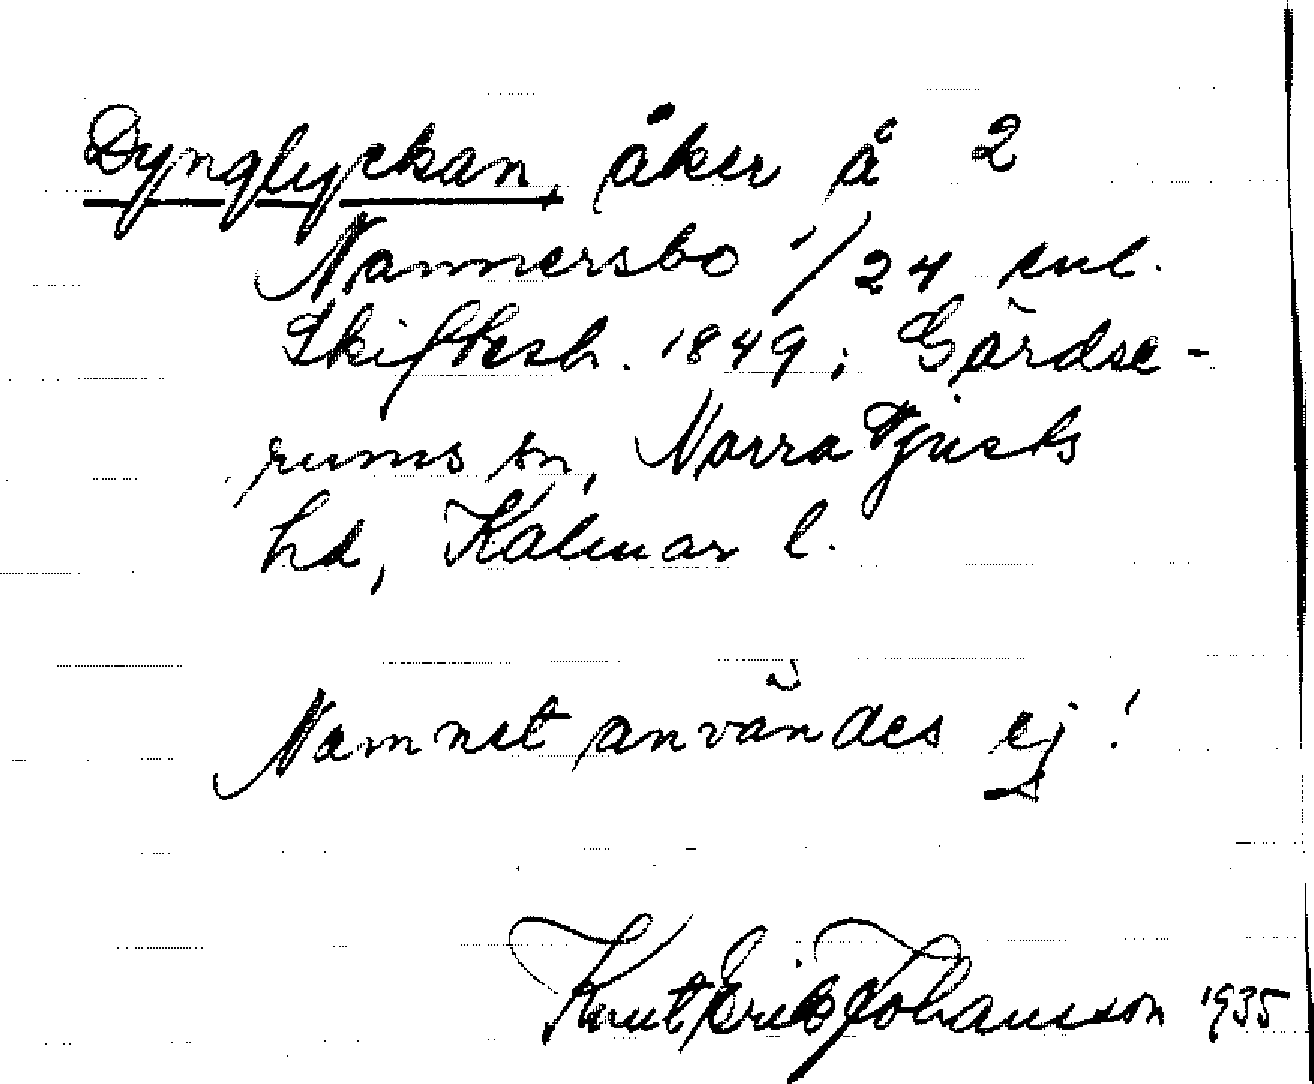 Dynglyckan, åker å 2
Nannersbo 1/24 enl.
Skiftesb. 1849; Gärdse-
rums sn, Norra Tjusts
hd, Kalmar l.
Namnet användes ej!
Knut Erik Johansson 1935